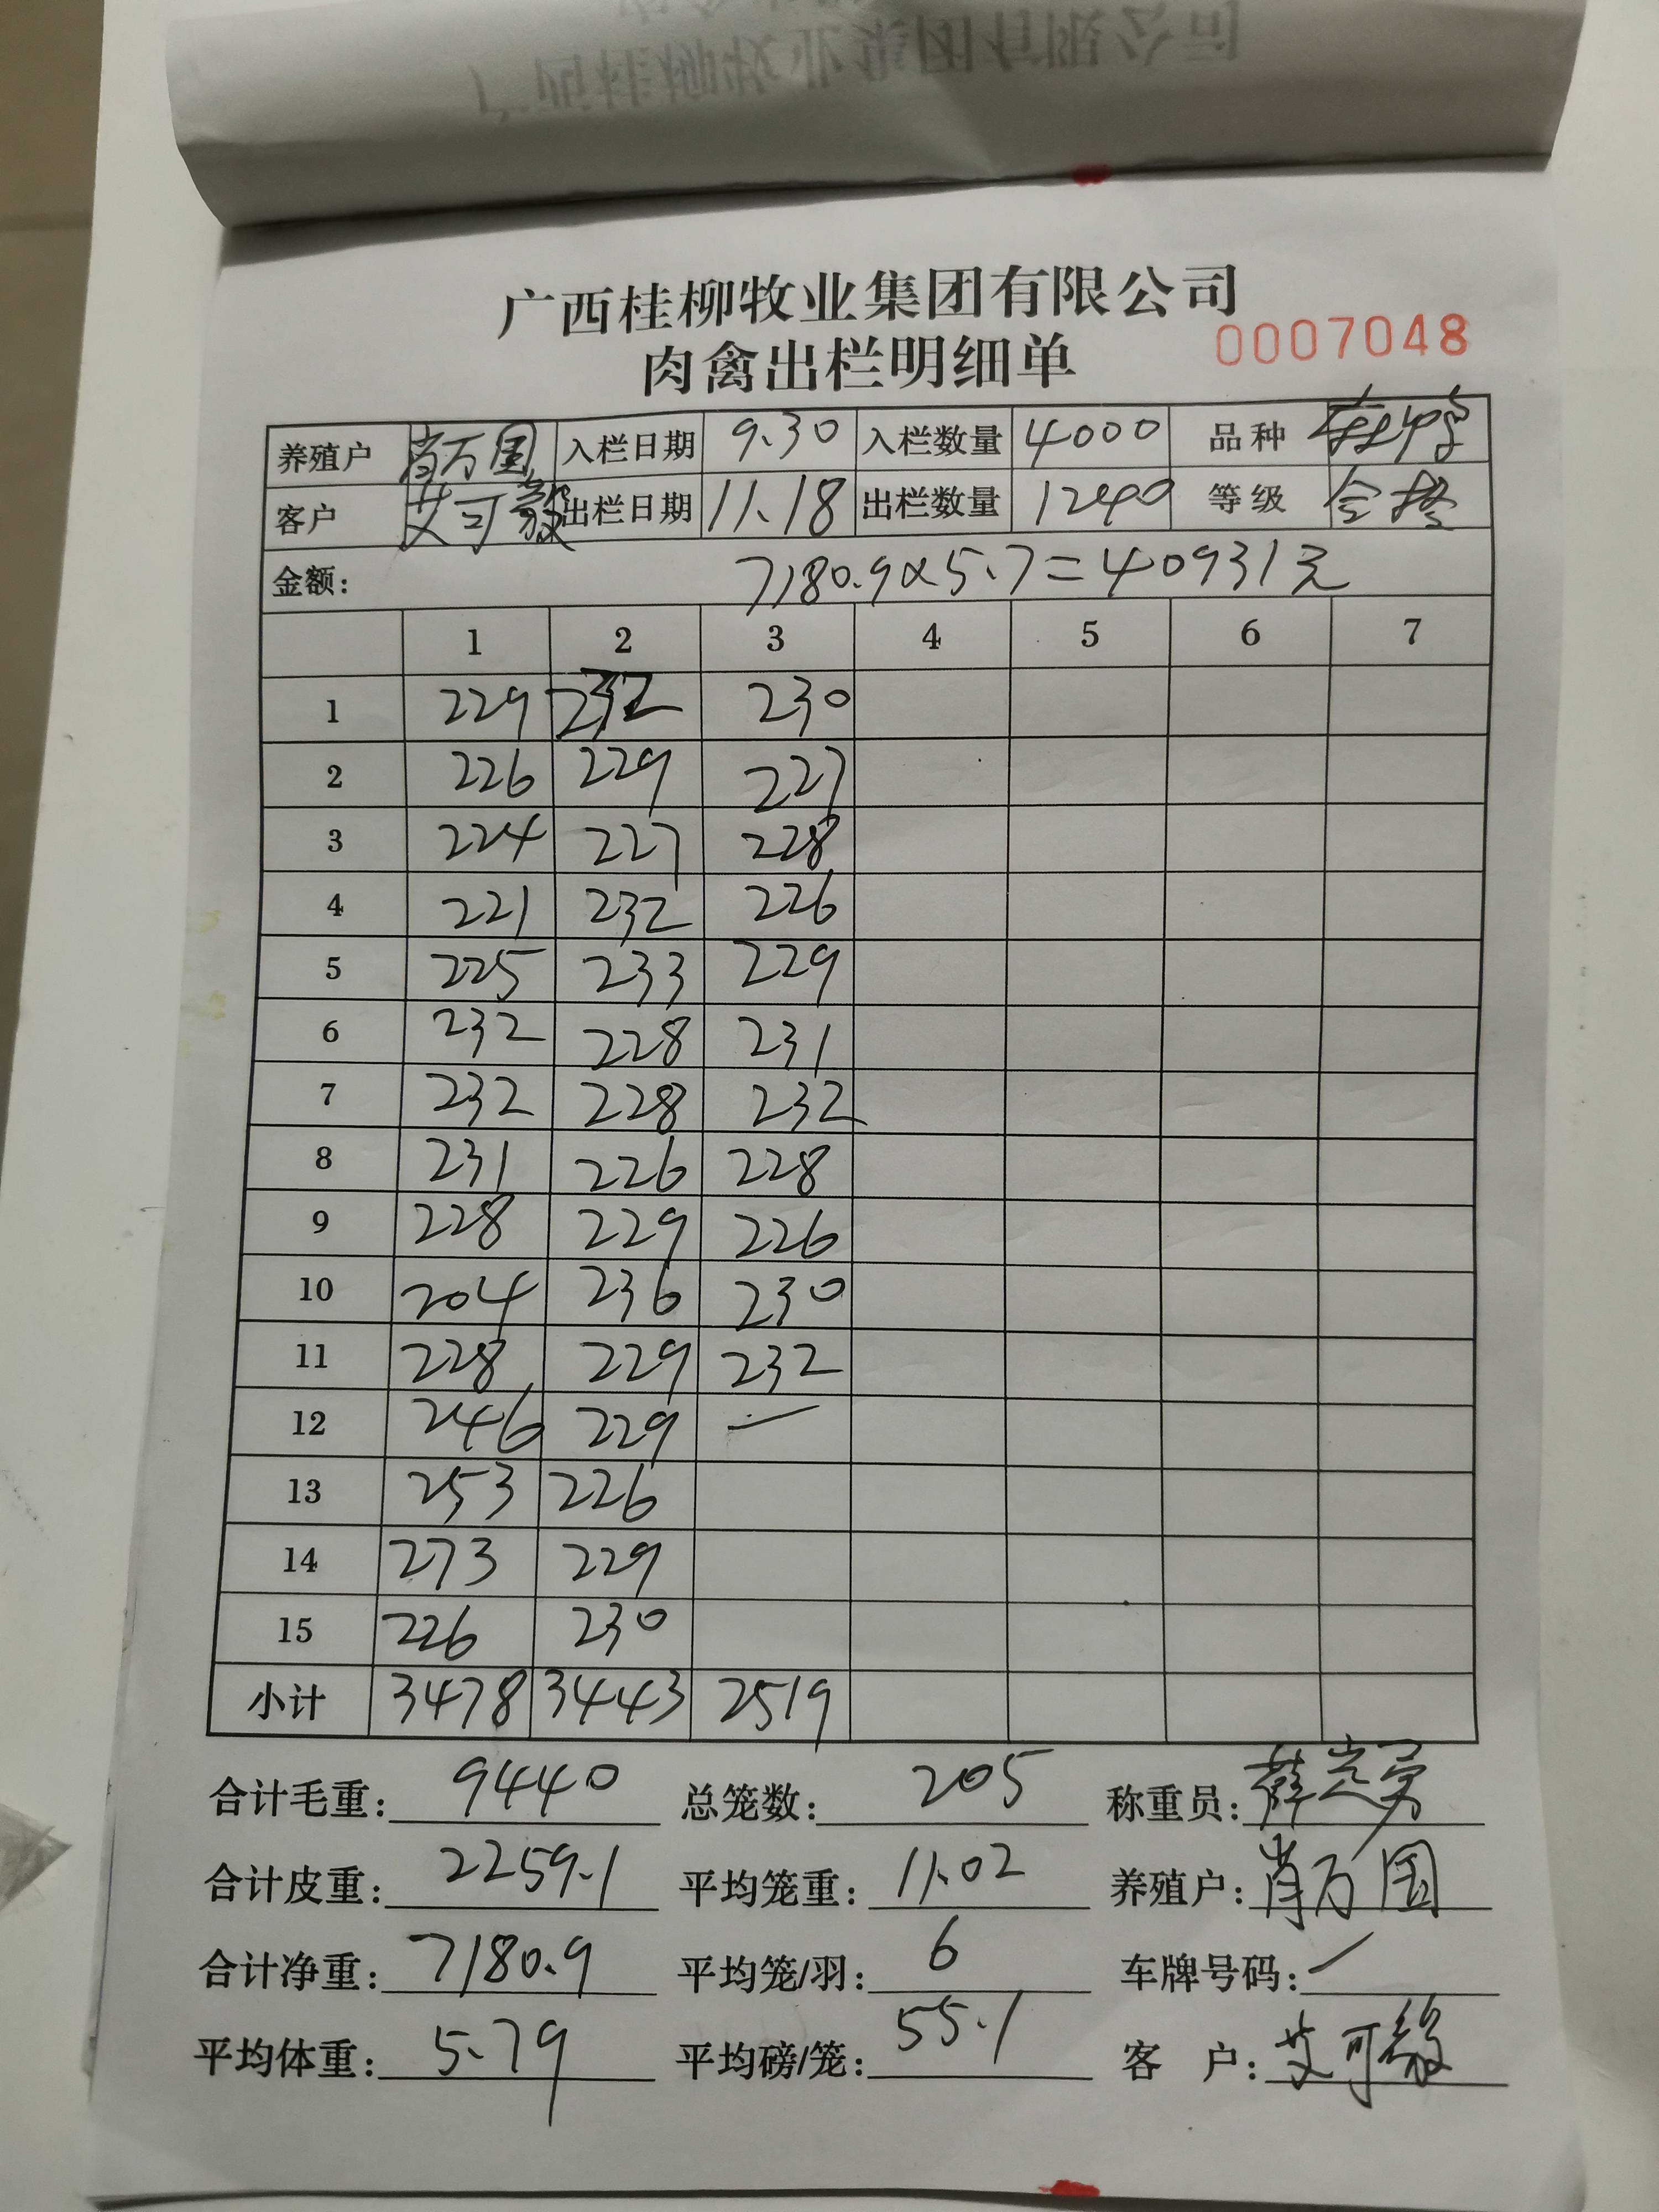 广西桂柳牧业集团有限公司
广西桂柳牧业集团有限公司
肉禽出栏明细单 0007048
养殖户 肖万国 入栏日期 9.30 入栏数量 4000 品种
客户 艾可毅 出栏日期 11.18 出栏数量 1240 等级 合格
金额: 7180.9×5.7=40931元
1 2 3 4 5 6 7
1 229 232 230
2 226 229 227
3 224 227 228
4 221 232 226
5 225 233 229
6 232 228 231
7 232 228 232
8 231 226 228
9 228 229 226
10 204 236 230
11 228 229 232
12 246 229 —
13 253 226
14 273 229
15 226 230
小计 3478 3443 2519
合计毛重: 9440 总笼数: 205 称重员: 薛志勇
合计皮重: 2259.1 平均笼重: 11.02 养殖户: 肖万国
合计净重: 7180.9 平均笼/羽: 6 车牌号码: /
平均体重: 5.79 平均磅/笼: 55.1 客 户: 艾可毅